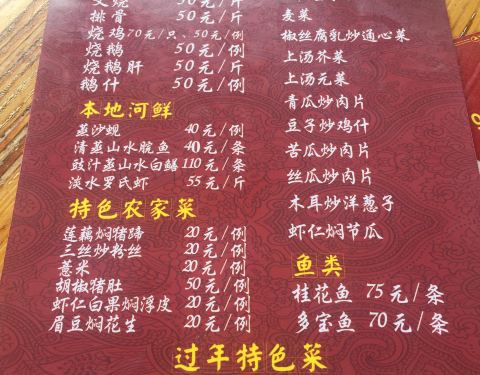 叉烧 50元/斤
排骨 50元/斤
烧鸡70元/只、50元/例
烧鹅 50元/斤
烧鹅肝 50元/斤
鹅什 50元/例
本地河鲜
蒸沙蚬 40元/例
清蒸山水脘鱼 40元/条
豉汁蒸山水白鳝 110元/条
淡水罗氏虾 55元/斤
特色农家菜
莲藕焖猪蹄 20元/例
三丝炒粉丝 20元/例
薏米 20元/例
胡椒猪肚 50元/例
虾仁白果焖浮皮 20元/例
眉豆焖花生 20元/例
麦菜
椒丝腐乳炒通心菜
上汤芥菜
上汤元菜
青瓜炒肉片
豆子炒鸡什
苦瓜炒肉片
丝瓜炒肉片
木耳炒洋葱子
虾仁焖节瓜
鱼类
桂花鱼 75元/条
多宝鱼 70元/条
过年特色菜